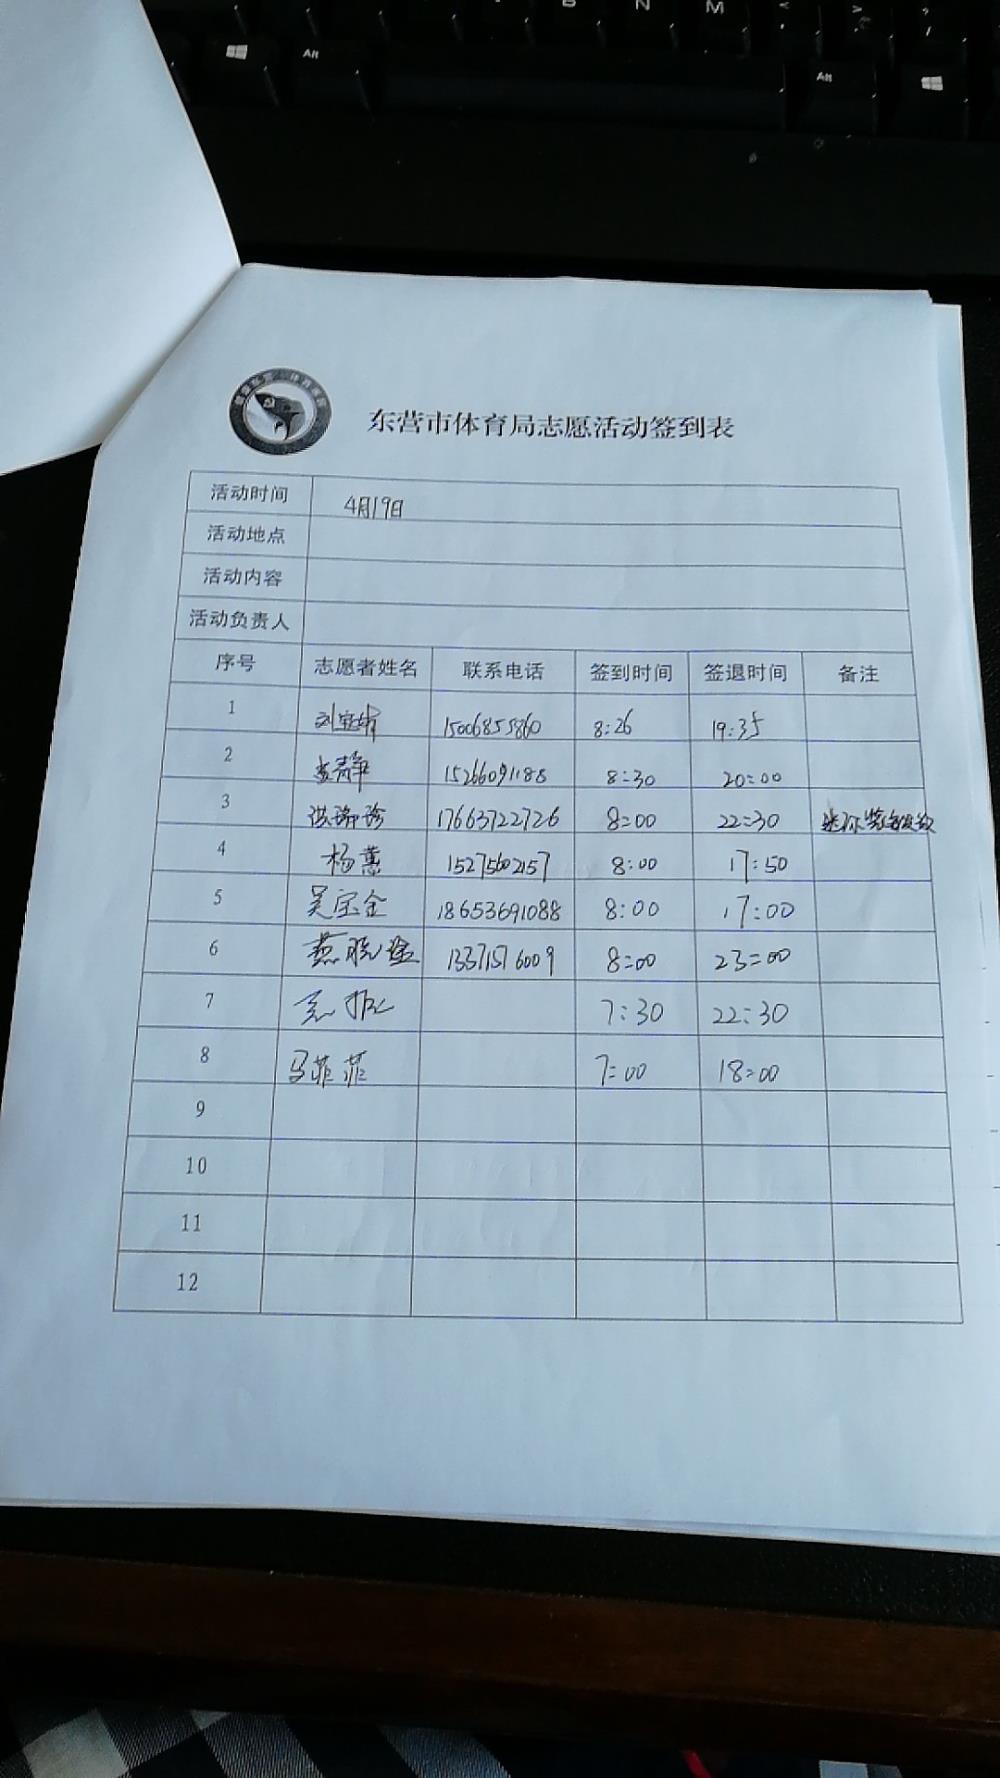 B N M
Alt Alt
东营市体育局志愿活动签到表
活动时间 4月19日
活动地点
活动内容
活动负责人
序号 志愿者姓名 联系电话 签到时间 签退时间 备注
1 15006855860 8:26 19:35
2 15266091188 8:30 20:00
3 17663722726 8:00 22:30
4 杨蕙 15275602157 8:00 17:50
5 吴宝金 18653691088 8:00 17:00
6 13371576009 8:00 23:00
7 7:30 22:30
8 马菲菲 7:00 18:00
9
10
11
12